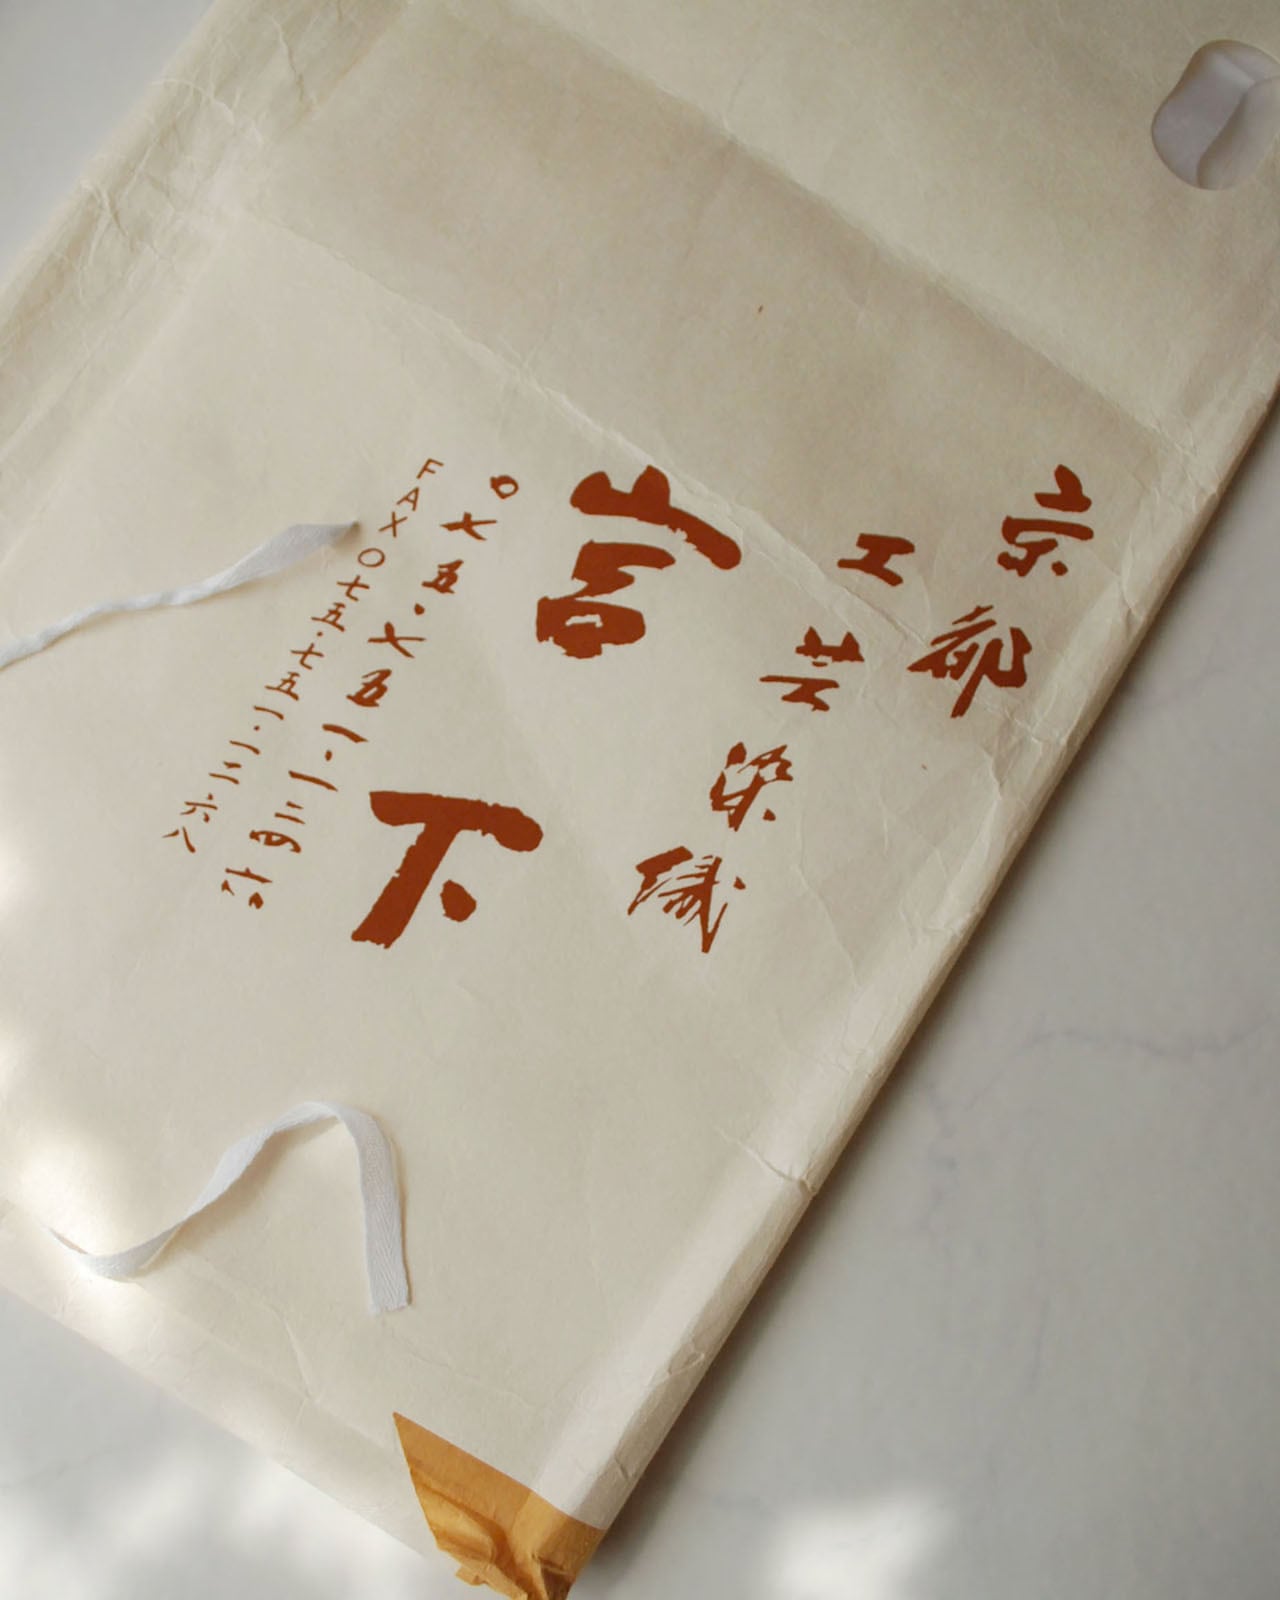 京都
工芸染織
宮下
〇七五・七五一・一二四六
FAX〇七五・七五一・一二六八